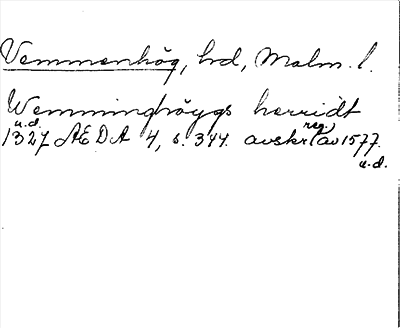 Vemmenhög, hrd, Malm. l.
Wemminghöyggs herridt
u.d.
1327 ÆDA 4, s. 344. avskr (reg.) av 1577.
u.d.